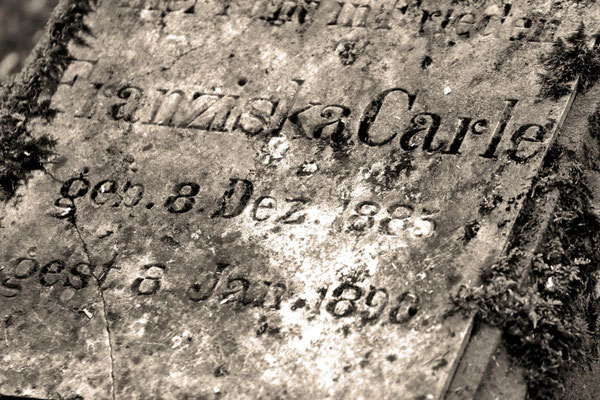 Hier ruht in Frieden
Franziska Carle
geb. 8. Dez. 1885
gest. 8. Jan. 1890